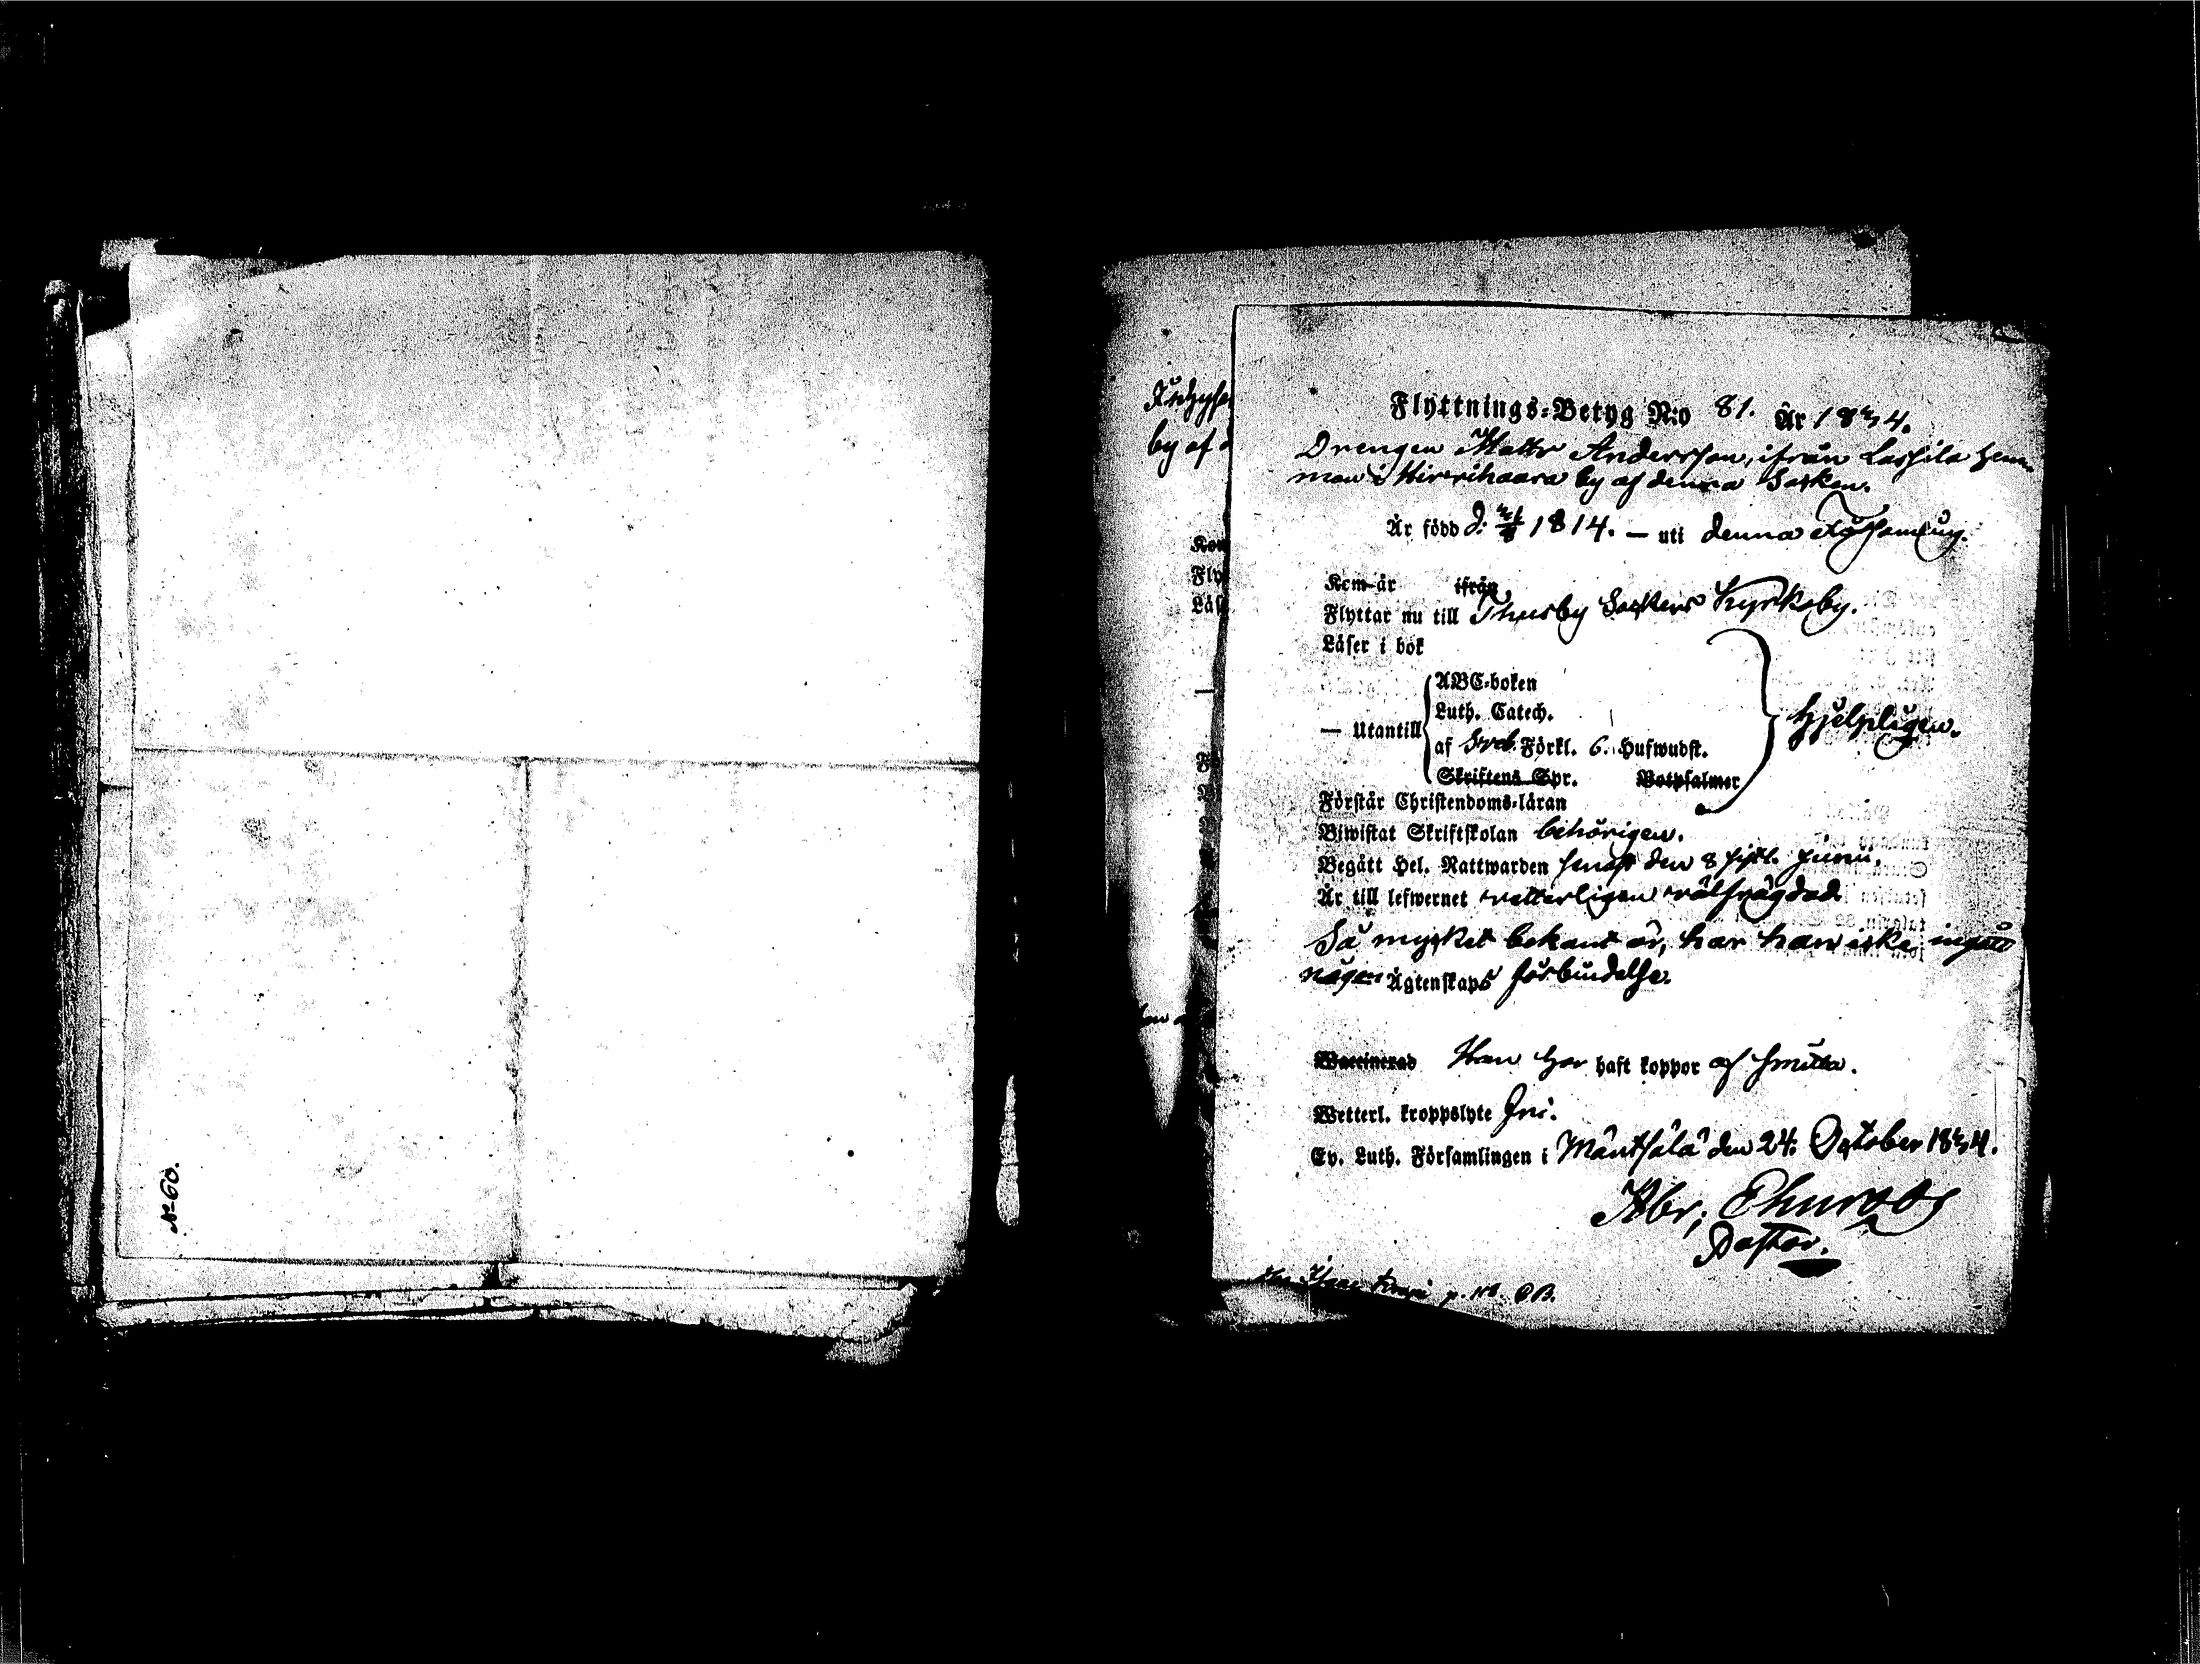 N:o 60.
Flyttnings-Betyg N:o 81. År 1834.
Drengen Matts Andersson, ifrån Lassila hem-
man i Hirvihaara by af denna Socken.
Är född d. 1814. — uti denna Församling.
Kom är ifrån
Flyttar nu till Thusby Sockens Kyrkoby.
Läser i bok
ABC-boken
Luth. Catech.
— Utantill
af Sveb. Förkl. 6. Hufwudst.
Hjelpligen.
Skriftens Spr. Botpsalmer
Förstår Christendoms-läran
Biwistat Skriftskolan behörigen.
Begått Hel. Nattwarden senast den 8 sistl. Junii.
Är till lefwernet vetterligen välfrägdad.
Så mycket bekant är, har han icke ingått
någon Ägtenskaps förbindelse.
Waccinerad Han har haft koppor af smitta.
Wetterl. kroppslyte fri.
Ev. Luth. Församlingen i Mäntsälä den 24. October 1834.
Abr;
Pastor.
by af